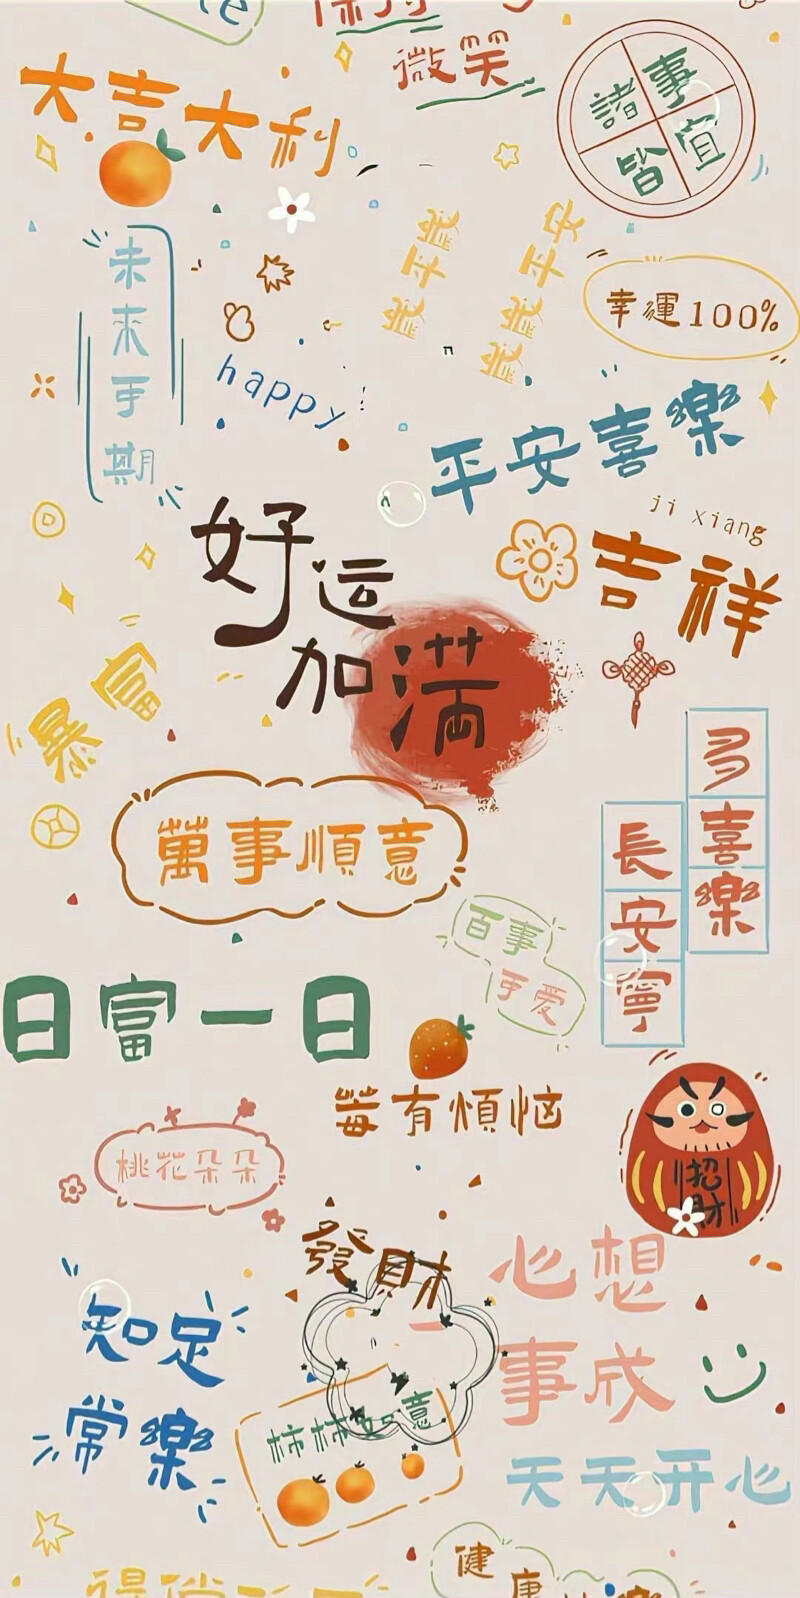 微笑
大吉大利
諸事皆宜
歲歲平安
未来可期
幸運100%
happy
平安喜樂
ji xiang
吉祥
好运
加满
暴富
多喜樂
長安寧
萬事順意
百事
可爱
日富一日
莓有煩恼
桃花朵朵
招財
發財
心想
事成
知足
常樂
柿柿如意
天天开心
健康